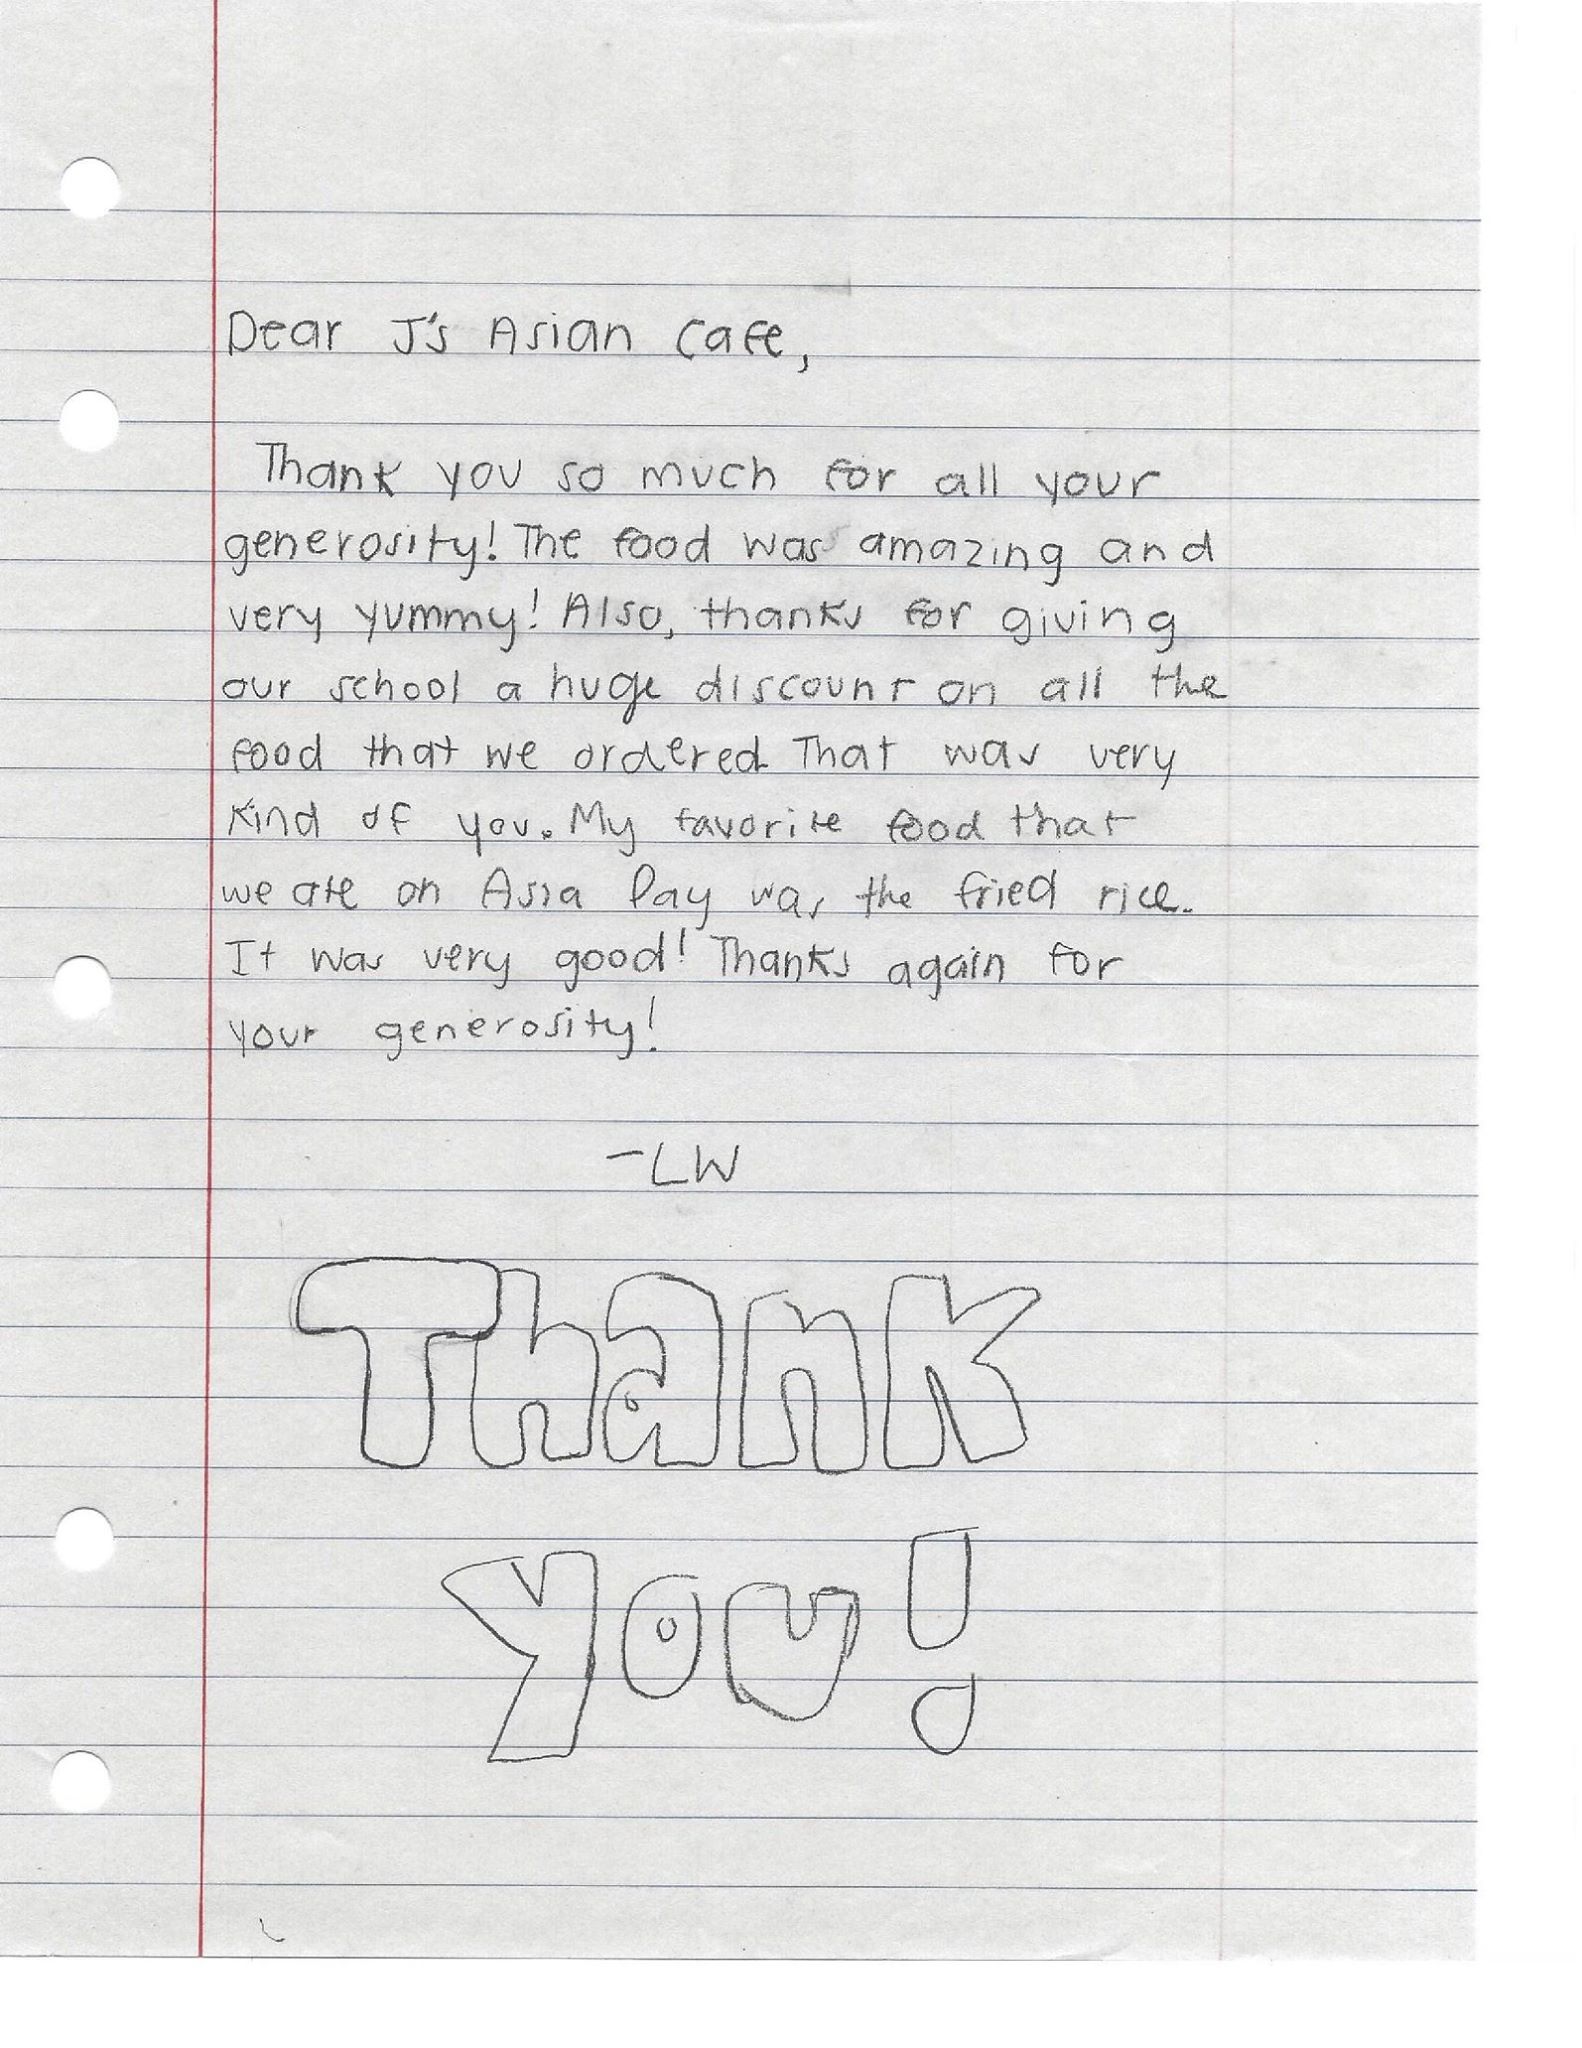 Dear J's Asian Cafe,
Thank you so much for all your
generosity! The food was amazing and
very yummy! Also, thanks for giving
our school a huge discount on all the
food that we ordered. That was very
kind of you. My favorite food that
we ate on Asia Day was the fried rice.
It was very good! Thanks again for
your generosity!
-LW
Thank
You!